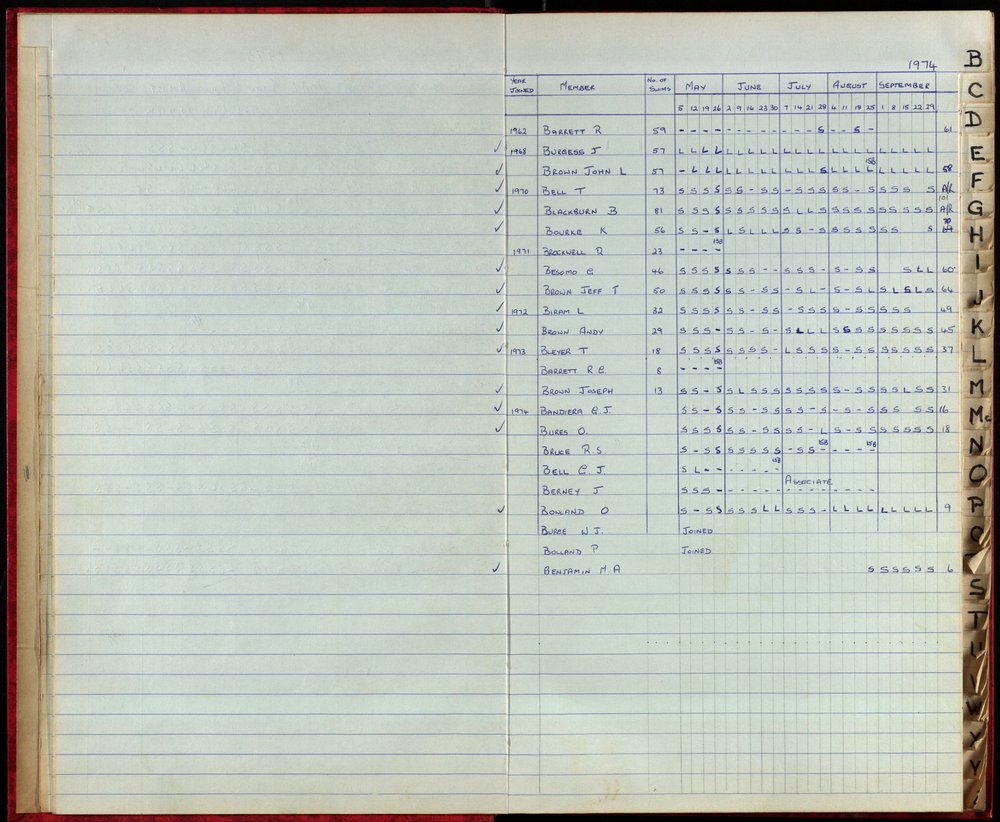 1974
YEAR JOINED MEMBER No. OF SWIMS MAY JUNE JULY AUGUST SEPTEMBER
5 12 19 26 2 9 16 23 30 7 14 21 28 4 11 18 25 1 8 15 22 29
1962 BARRETT R 59 - - - - - - - - - - - - S - - S - 61
✓ 1968 BURGESS J 57 L L L L L L L L L L L L L L L L L L L L L L
✓ BROWN JOHN L 57 - L L L L L L L L L L L S L L L L 158 L L L L L 58
✓ 1970 BELL T 73 S S S S S S - S S - S S S S S - S S S S S A/R
✓ BLACKBURN B 81 S S S S S S S S S S L L S S S S S S S S S S 101 A/R
✓ BOURKE K 56 S S - S L S L L L S S - S S S S S S S S 70
1971 BROCKWELL R 23 - - - - 158
✓ BESOMO G 46 S S S S S S S - - S S S - S - S S S L L 60
✓ BROWN JEFF T 50 S S S S S S - S S - S L - S - S L S L S L S 64
✓ 1972 BIRAM L 32 S S S S S S - S S - S S S S - S S S S S 49
✓ BROWN ANDY 29 S S S - S S - S - S L L L S S S S S S S S S 45
✓ 1973 BLEYER T 18 S S S S S S S S - L S S S S - S S S S S S S 37
BARRETT R.G. 8 - - - - 158
✓ BROWN JOSEPH 13 S S - S S L S S S S S S S S - S S S S L S S 31
✓ 1974 BANDIERA G.J. S S - S S S - S S S S - S - S - S S S S S 16
✓ BURES O. S S S S S S - S S S S - L S - S S S S S S S 18
BRUCE R.S. S - S S S S S S S - S S - 158 - - - - 158
BELL G.J. S L - - - - - - - 158
BERNEY J S S S - - - - - - ASSOCIATE - - - - - - - -
✓ BOWLAND O S - S S S S S L L S S S - L L L L L L L L L 9
BURGE W J. JOINED
BOLLAND P JOINED
✓ BENJAMIN M.A S S S S S S 6
B
C
D
E
F
G
H
I
J
K
L
M
Mc
N
O
P
Q
S
T
U
V
W
Y
Y